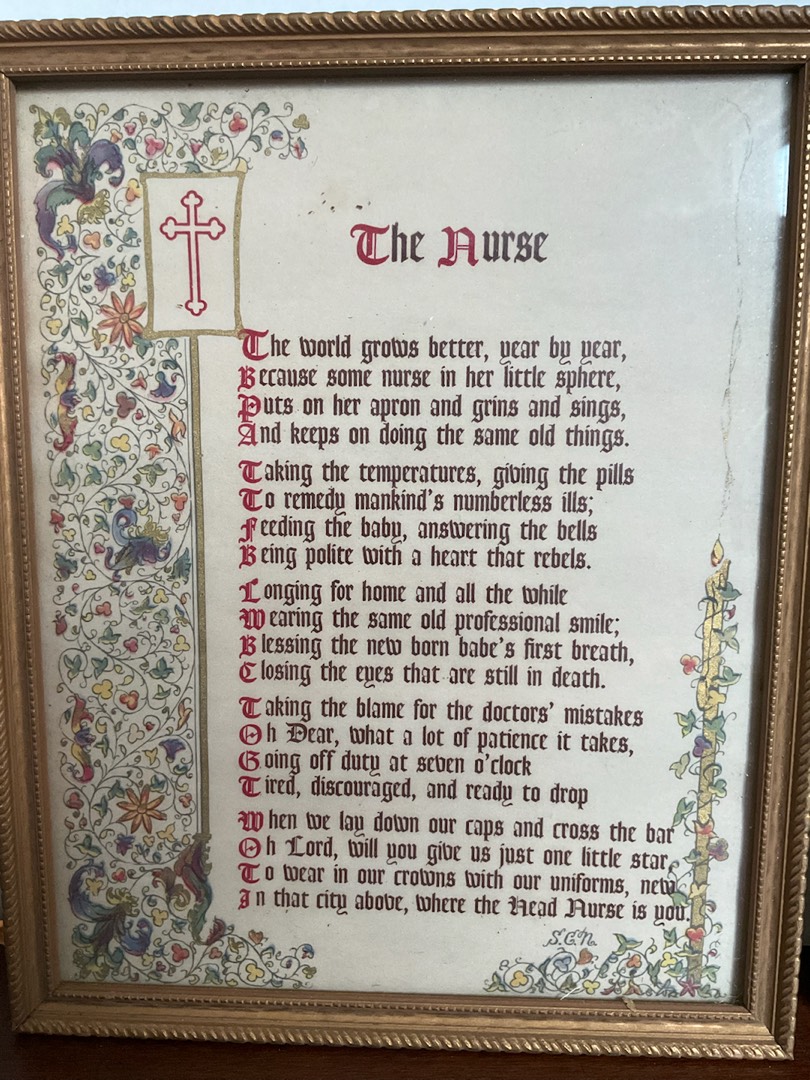 The Nurse
The world grows better, year by year,
Because some nurse in her little sphere,
Puts on her apron and grins and sings,
And keeps on doing the same old things.
Taking the temperatures, giving the pills
To remedy mankind's numberless ills;
Feeding the baby, answering the bells
Being polite with a heart that rebels.
Longing for home and all the while
Wearing the same old professional smile;
Blessing the new born babe's first breath,
Closing the eyes that are still in death.
Taking the blame for the doctors' mistakes
Oh Dear, what a lot of patience it takes,
Going off duty at seven o'clock
Tired, discouraged, and ready to drop
When we lay down our caps and cross the bar
Oh Lord, will you give us just one little star,
To wear in our crowns with our uniforms, new
In that city above, where the Head Nurse is you.
S.G.N.